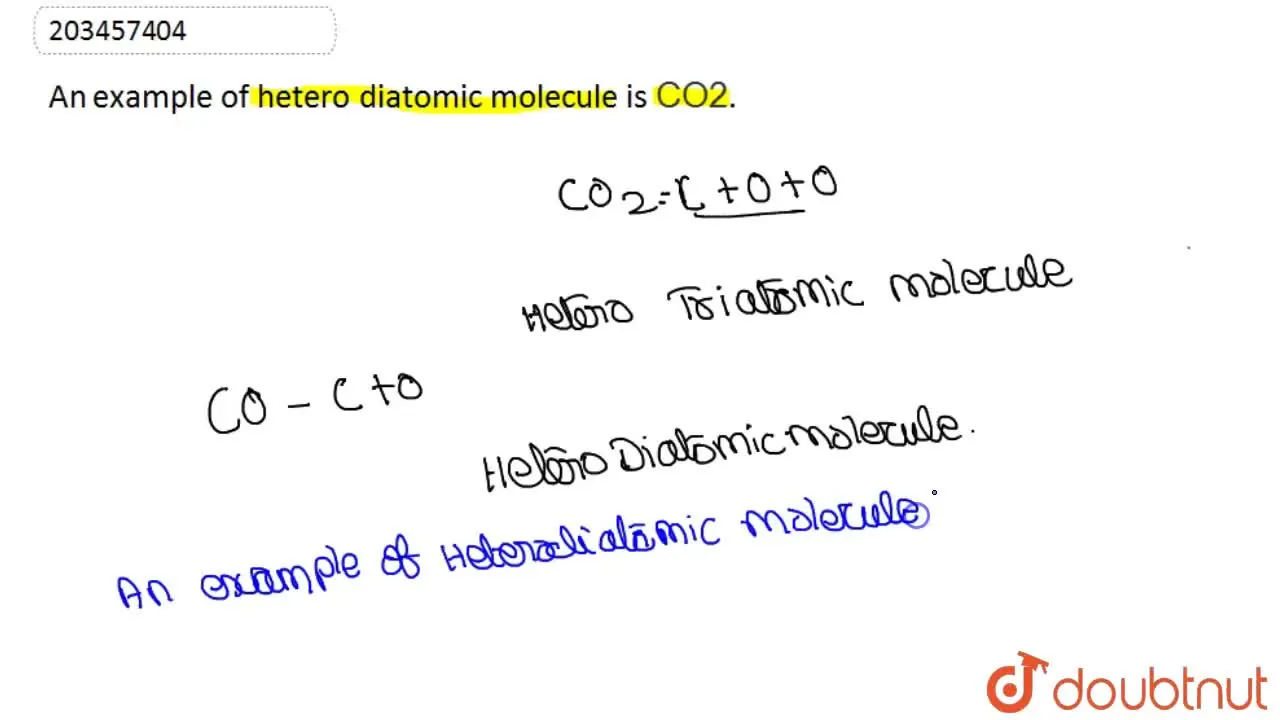 203457404
An example of hetero diatomic molecule is CO2.
CO2=C+O+O
Hetero Triatomic molecule
CO - C+O
Hetero Diatomic molecule.
An example of Heterodiatomic molecule
doubtnut